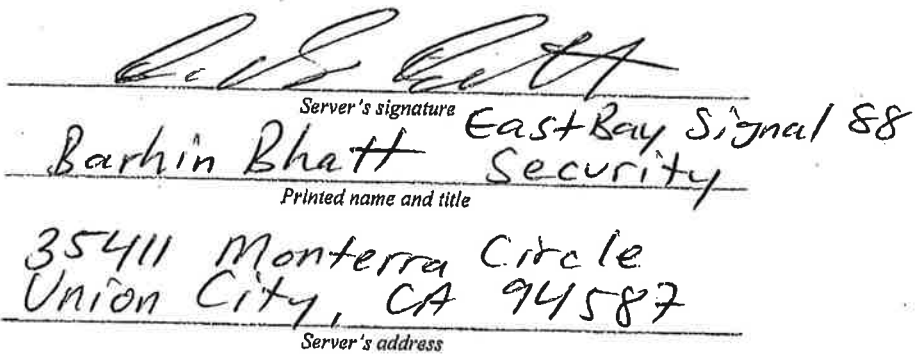 Server's signature
East Bay Signal 88
Barhin Bhatt Security
Printed name and title
35411 Monterra Circle
Union City, CA 94587
Server's address